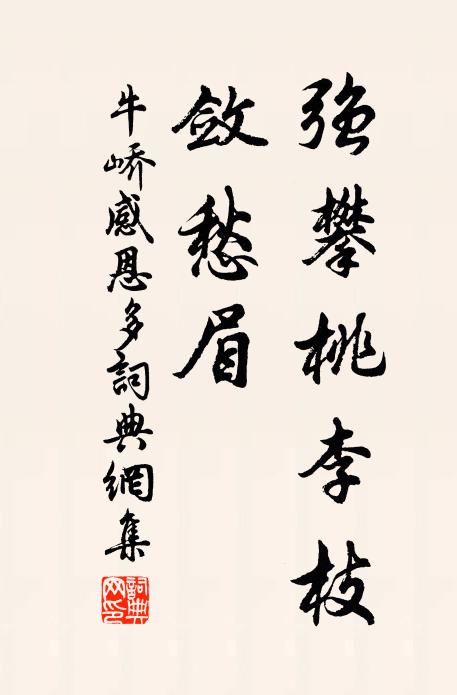 强攀桃李枝
敛愁眉
牛峤感恩多詞典網集
詞典网印